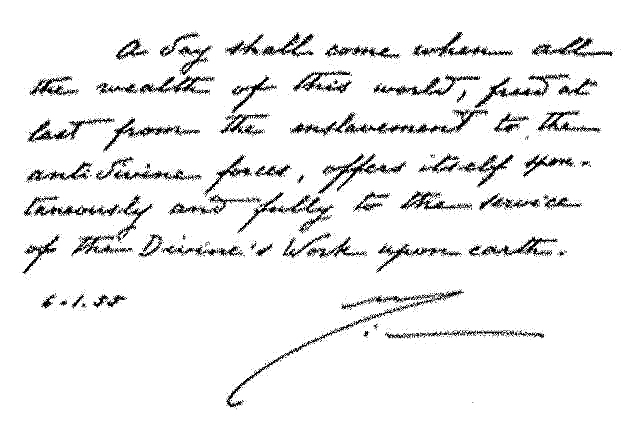 A day shall come when all
the wealth of this world, freed at
last from the enslavement to the
antidivine forces, offers itself spon-
taneously and fully to the service
of the Divine's Work upon earth.
6-1.55